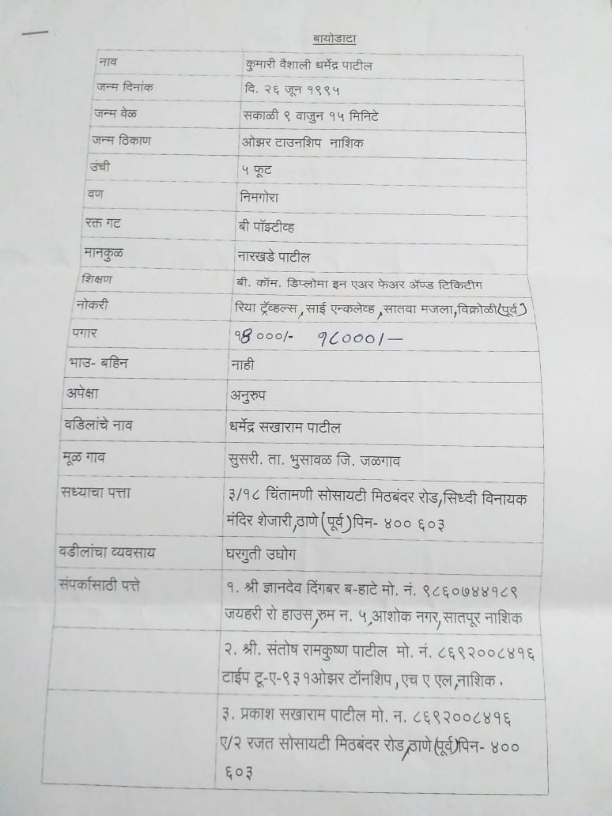 बायोडाटा
नाव कुमारी वैशाली धर्मेद्र पाटील
जन्म दिनांक दि. २६ जून १९९५
जन्म वेळ सकाळी ९ वाजुन १५ मिनिटे
जन्म ठिकाण ओझर टाउनशिप नाशिक
उंची ५ फूट
वण निमगोरा
रक्त गट बी पॉझ्टीव्ह
मानकुळ नारखडे पाटील
शिक्षण बी. कॉम. डिप्लोमा इन एअर फेअर ॲण्ड टिकिटीग
नोकरी रिया ट्रॅव्हल्स ,साई एन्कलेव्ह ,सातवा मजला,विक्रोळी(पूर्व)
पगार १८०००/-
भाउ- बहिन नाही
अपेक्षा अनुरुप
वडिलांचे नाव धर्मेद्र सखाराम पाटील
मूळ गाव सुसरी. ता. भुसावळ जि. जळगाव
सध्याचा पत्ता ३/१८ चिंतामणी सोसायटी मिठबंदर रोड,सिध्दी विनायक
मंदिर शेजारी,ठाणे(पूर्व)पिन- ४०० ६०३
वडीलांचा व्यवसाय घरगुती उघोग
संपर्कासाठी पत्ते १. श्री ज्ञानदेव दिंगबर ब-हाटे मो. नं. ९८६०७४४१८९
जयहरी रो हाउस,रुम न. ५,आशोक नगर,सातपूर नाशिक
२. श्री. संतोष रामकुष्ण पाटील मो. नं. ८६९२००८४१६
टाईप टू-ए-९३१ओझर टॉनशिप ,एच ए एल,नाशिक .
३. प्रकाश सखाराम पाटील मो. न. ८६९२००८४१६
ए/२ रजत सोसायटी मिठबंदर रोड,ठाणे(पूर्व)पिन- ४००
६०३